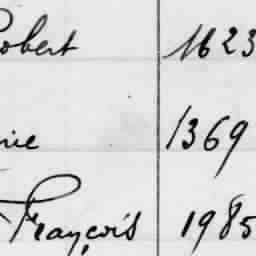 Robert 1623
rie 1369
François 1985